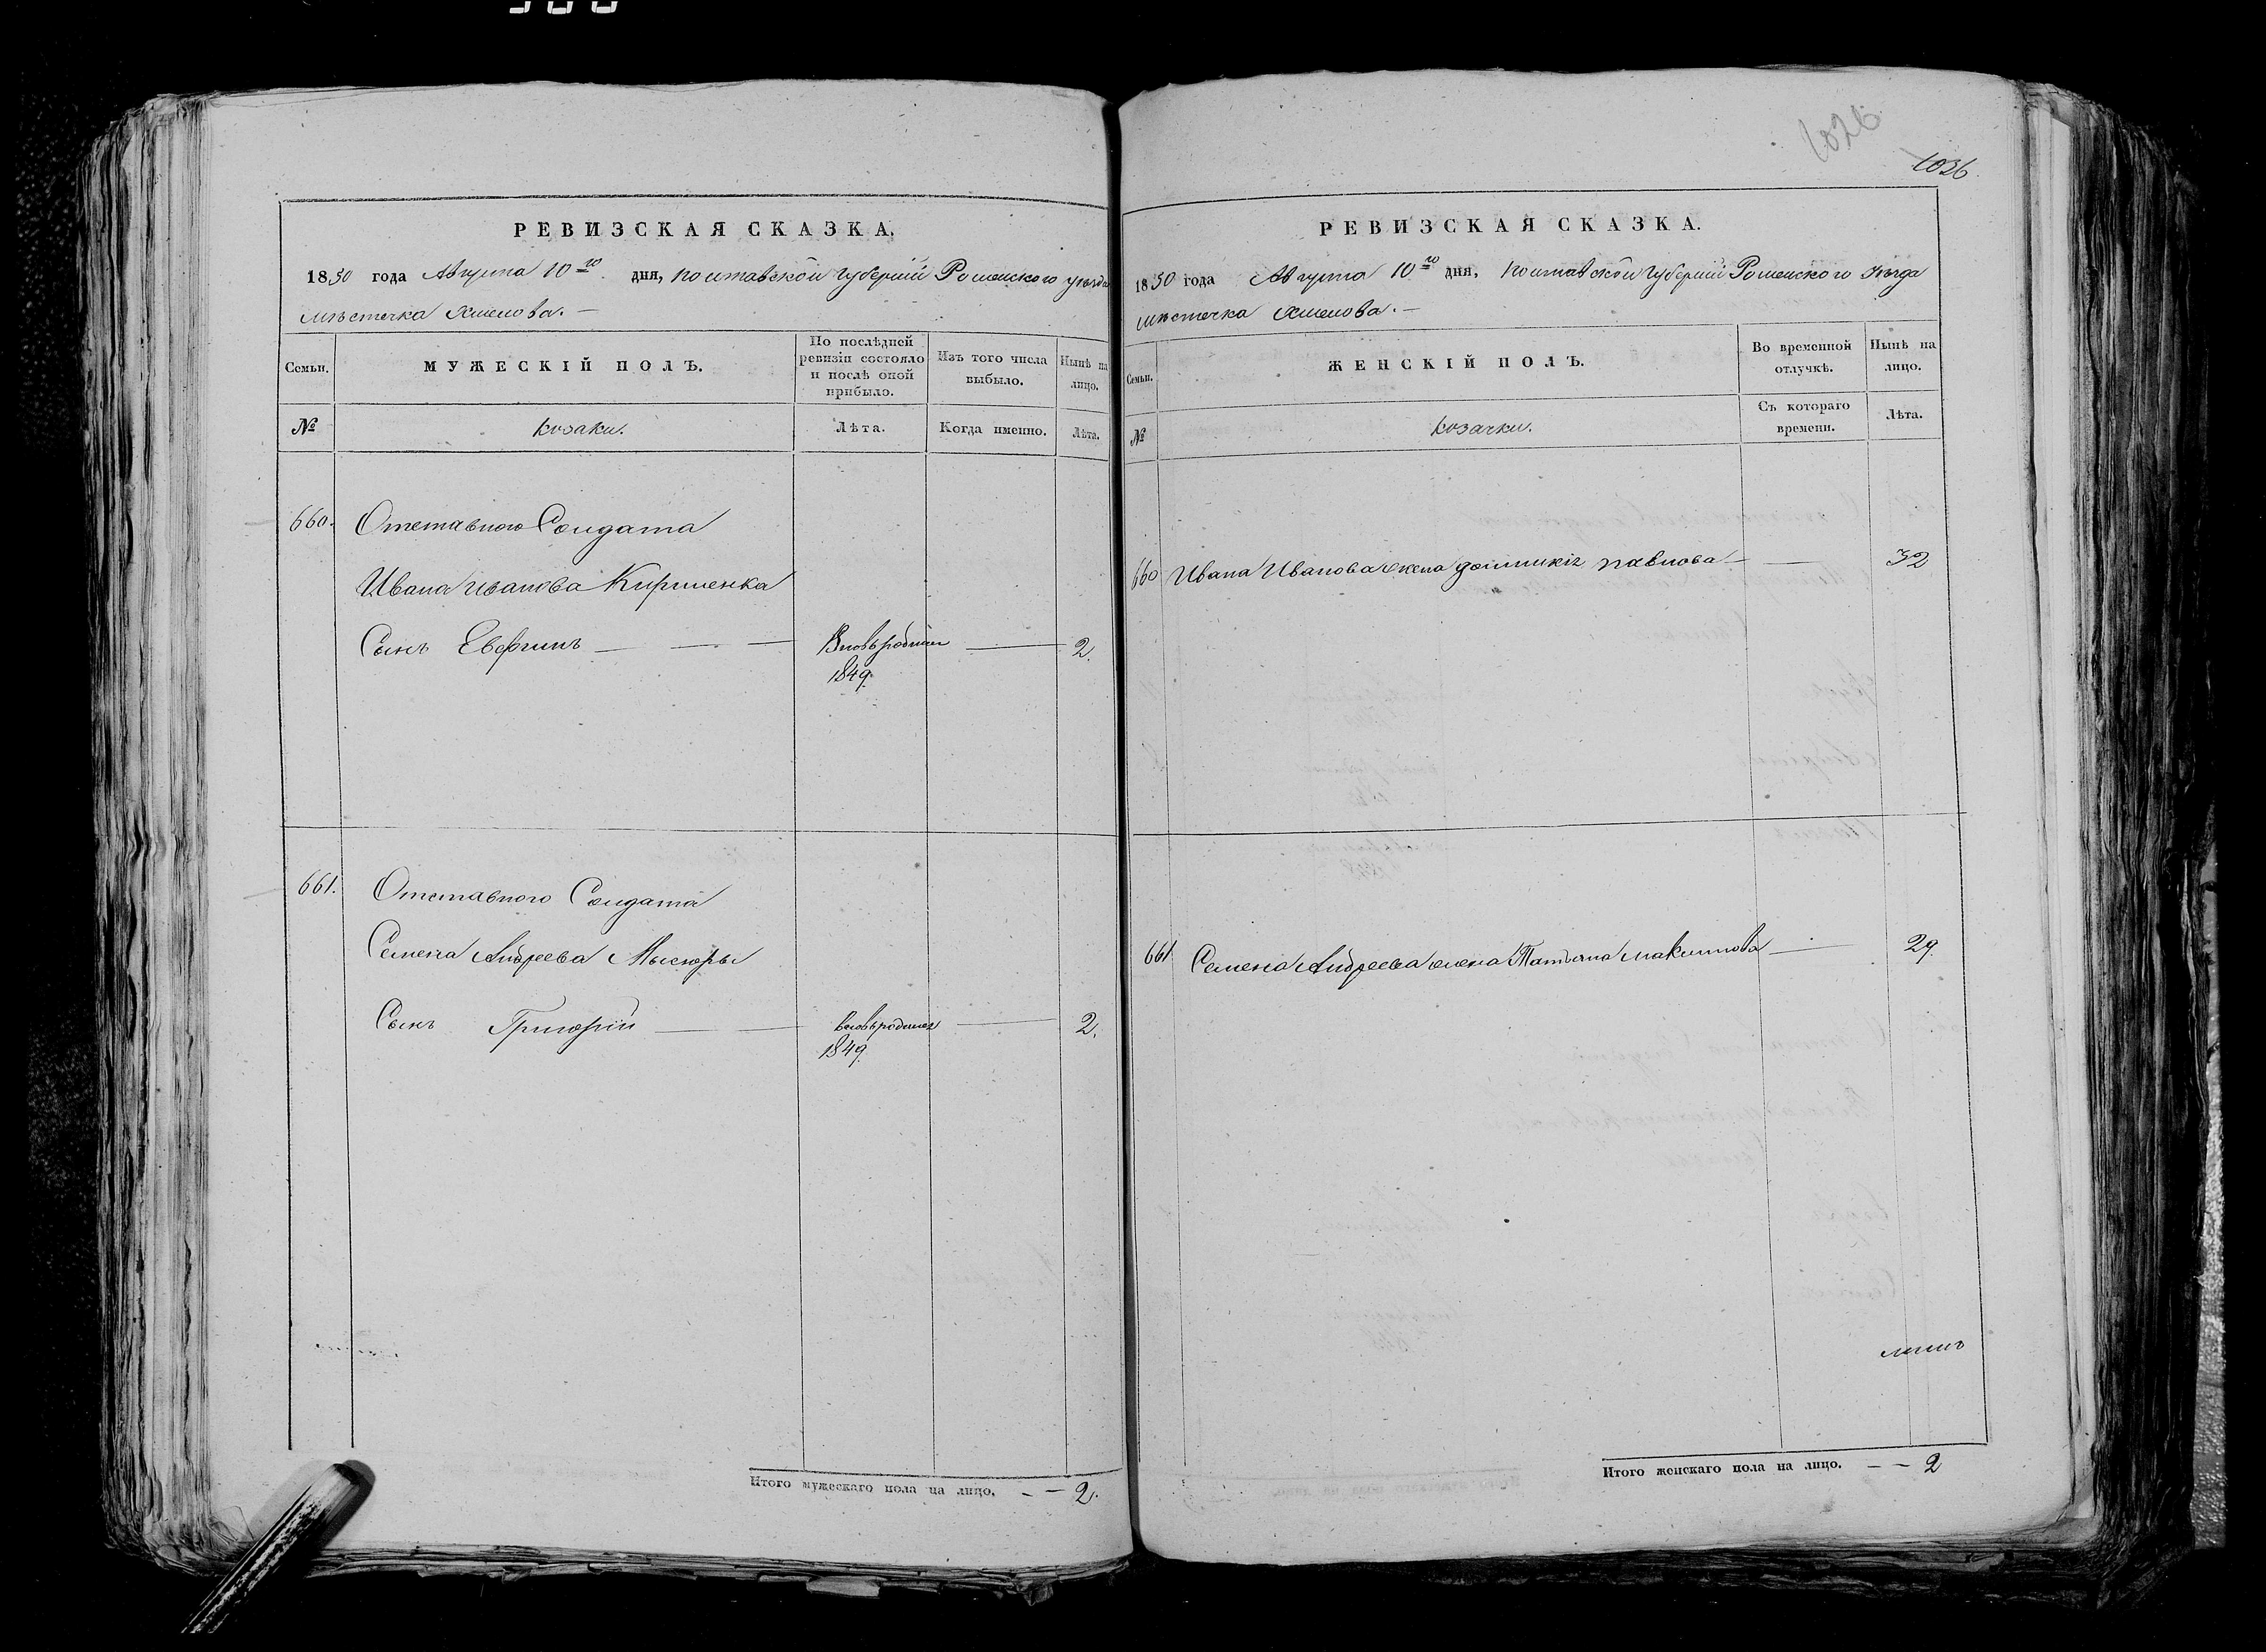 РЕВИЗСКАЯ СКАЗКА.
1850 года Августа 10го дня, Полтавской губерніи Роменского уѣзда
мѣстечка Хмелова. —
Семьи. МУЖЕСКІЙ ПОЛЪ. По послѣдней ревизіи состояло и послѣ оной прибыло. Изъ того числа выбыло. Нынѣ на лицо.
№ козаки. Лѣта. Когда именно. Лѣта.
660. Отставного Солдата
Ивана Иванова Кириленка
Сынъ Евфтипъ — — — Вновьрожден — 2.
1849
661. Отставного Солдата
Семена Андреева Мысюры
Сынъ Григорій — — вновьрожден — 2.
1849
Итого мужескаго пола на лицо. — — 2.
1026
1036
РЕВИЗСКАЯ СКАЗКА.
1850 года Августа 10го дня, Полтавской губерніи Роменского уѣзда
мѣстечка Хмелова. —
Семьи. ЖЕНСКІЙ ПОЛЪ. Во временной отлучкѣ. Нынѣ на лицо.
№ козачки. Съ котораго времени. Лѣта.
660 Ивана Иванова жена Домникія Павлова — — 32
661 Семена Андреева жена Татьяна Максимова — 29
Итого женскаго пола на лицо. — — 2